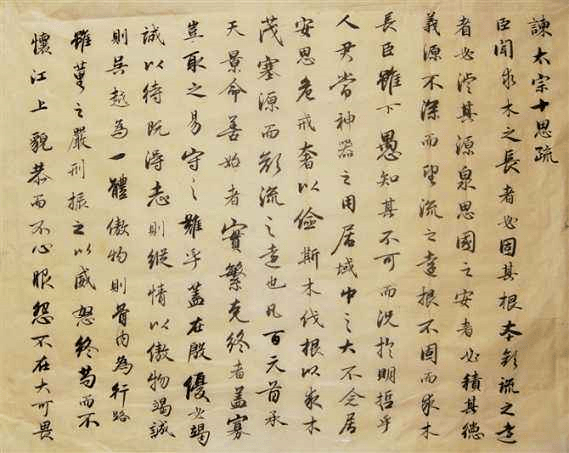 諫太宗十思疏
臣聞求木之長者必固其根本欲流之遠
者必浚其源泉思國之安者必積其德
義源不深而望流之遠根不固而求木
長臣雖下愚知其不可而況於明哲乎
人君當神器之用居域中之大不念居
安思危戒奢以儉斯木伐根以求木
茂塞源而欲流之遠也凡百元首承
天景命善始者實繁克終者蓋寡
豈取之易守之難乎蓋在殷優必竭
誠以待既得志則縱情以傲物竭誠
則吳越為一體傲物則骨肉為行路
雖董之嚴刑振之以威怒終苟而不
懷江上貌恭而不心服怨不在大可畏